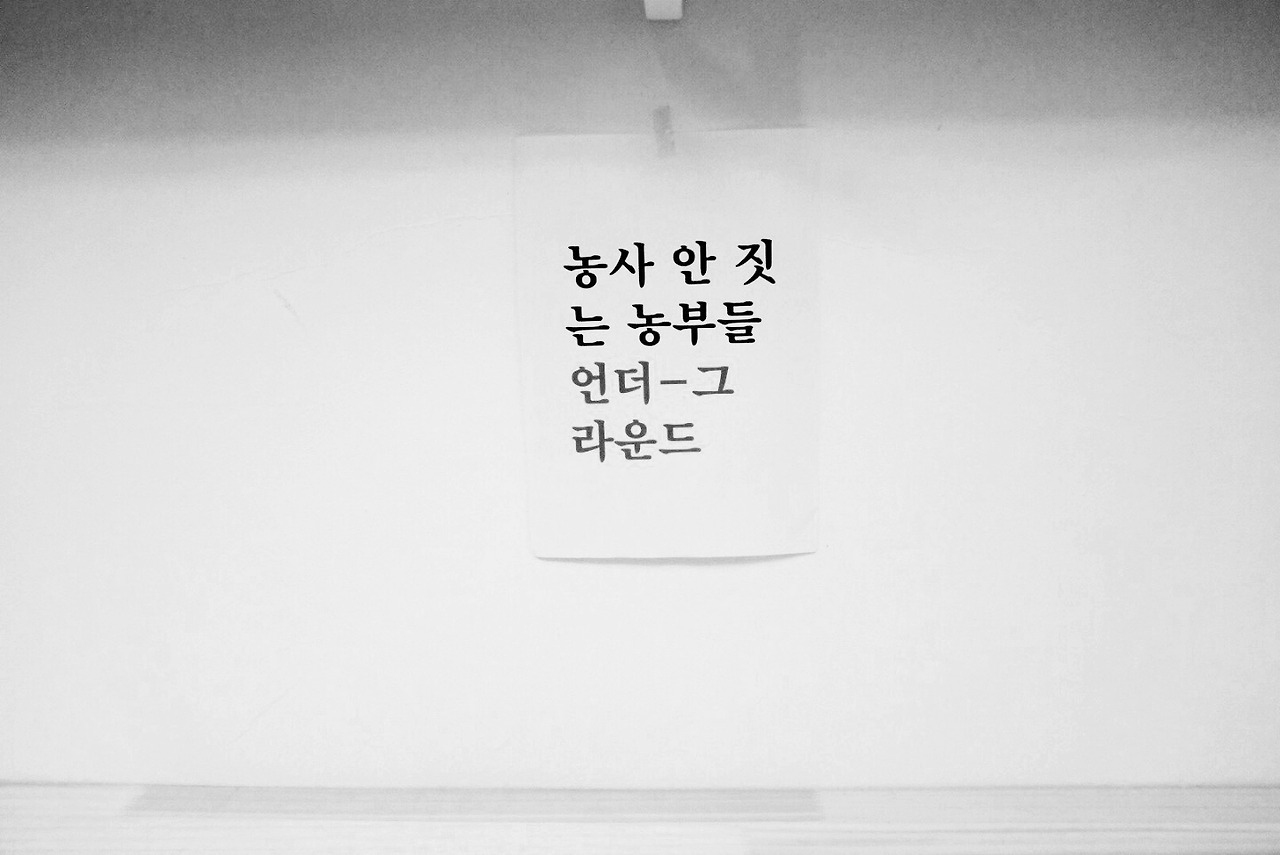 농사 안 짓
는 농부들
언더-그
라운드